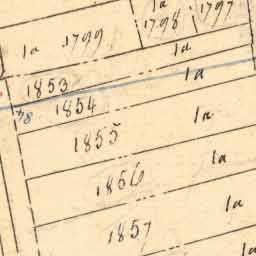 1a 1797
1798
1a 1799
1a
1853 1a
1854
1a
1855
1a
1856
1a
1857
1a